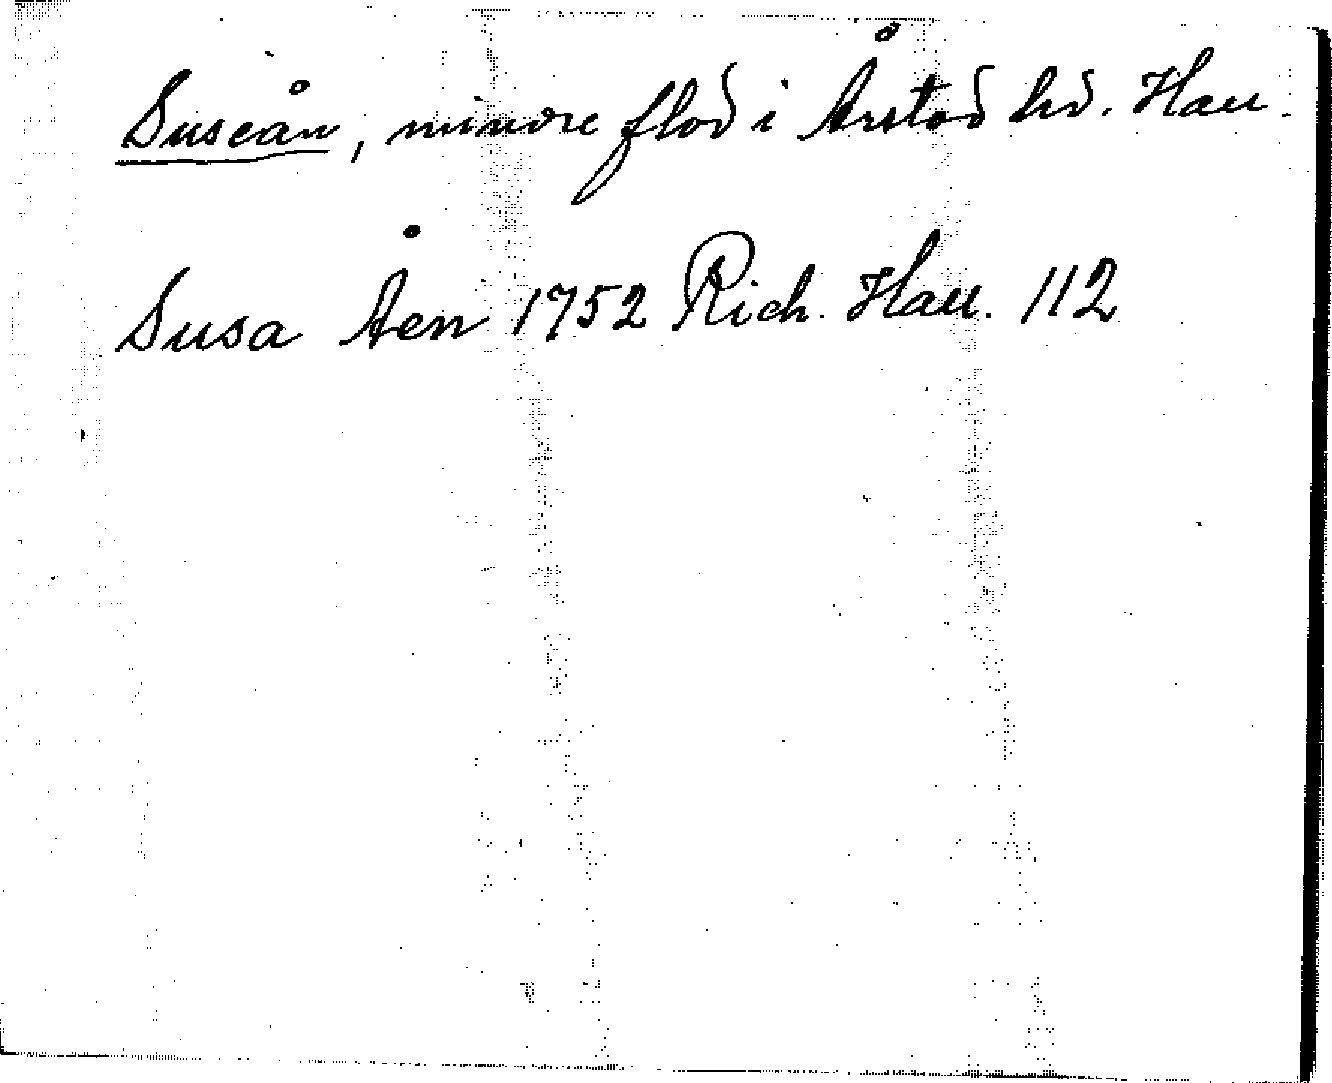 Suseån, mindre flod i Årstad hd. Hall.
Susa Åen 1752 Rich. Hall. 112